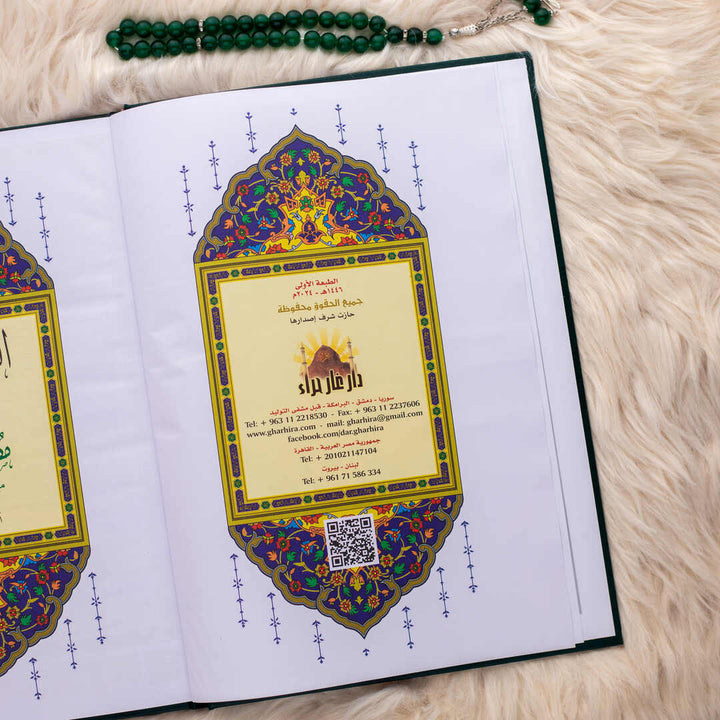 الطبعة الأولى
١٤٤٦هـ - ٢٠٢٤م
جميع الحقوق محفوظة
حازت شرف إصدارها
دار غار حراء
سوريا - دمشق - البرامكة - قبل مشفى التوليد
Tel: + 963 11 2218530 - Fax: + 963 11 2237606
www.gharhira.com - mail: gharhira@gmail.com
facebook.com/dar.gharhira
جمهورية مصر العربية - القاهرة
Tel: + 201021147104
لبنان - بيروت
Tel: + 961 71 586 334